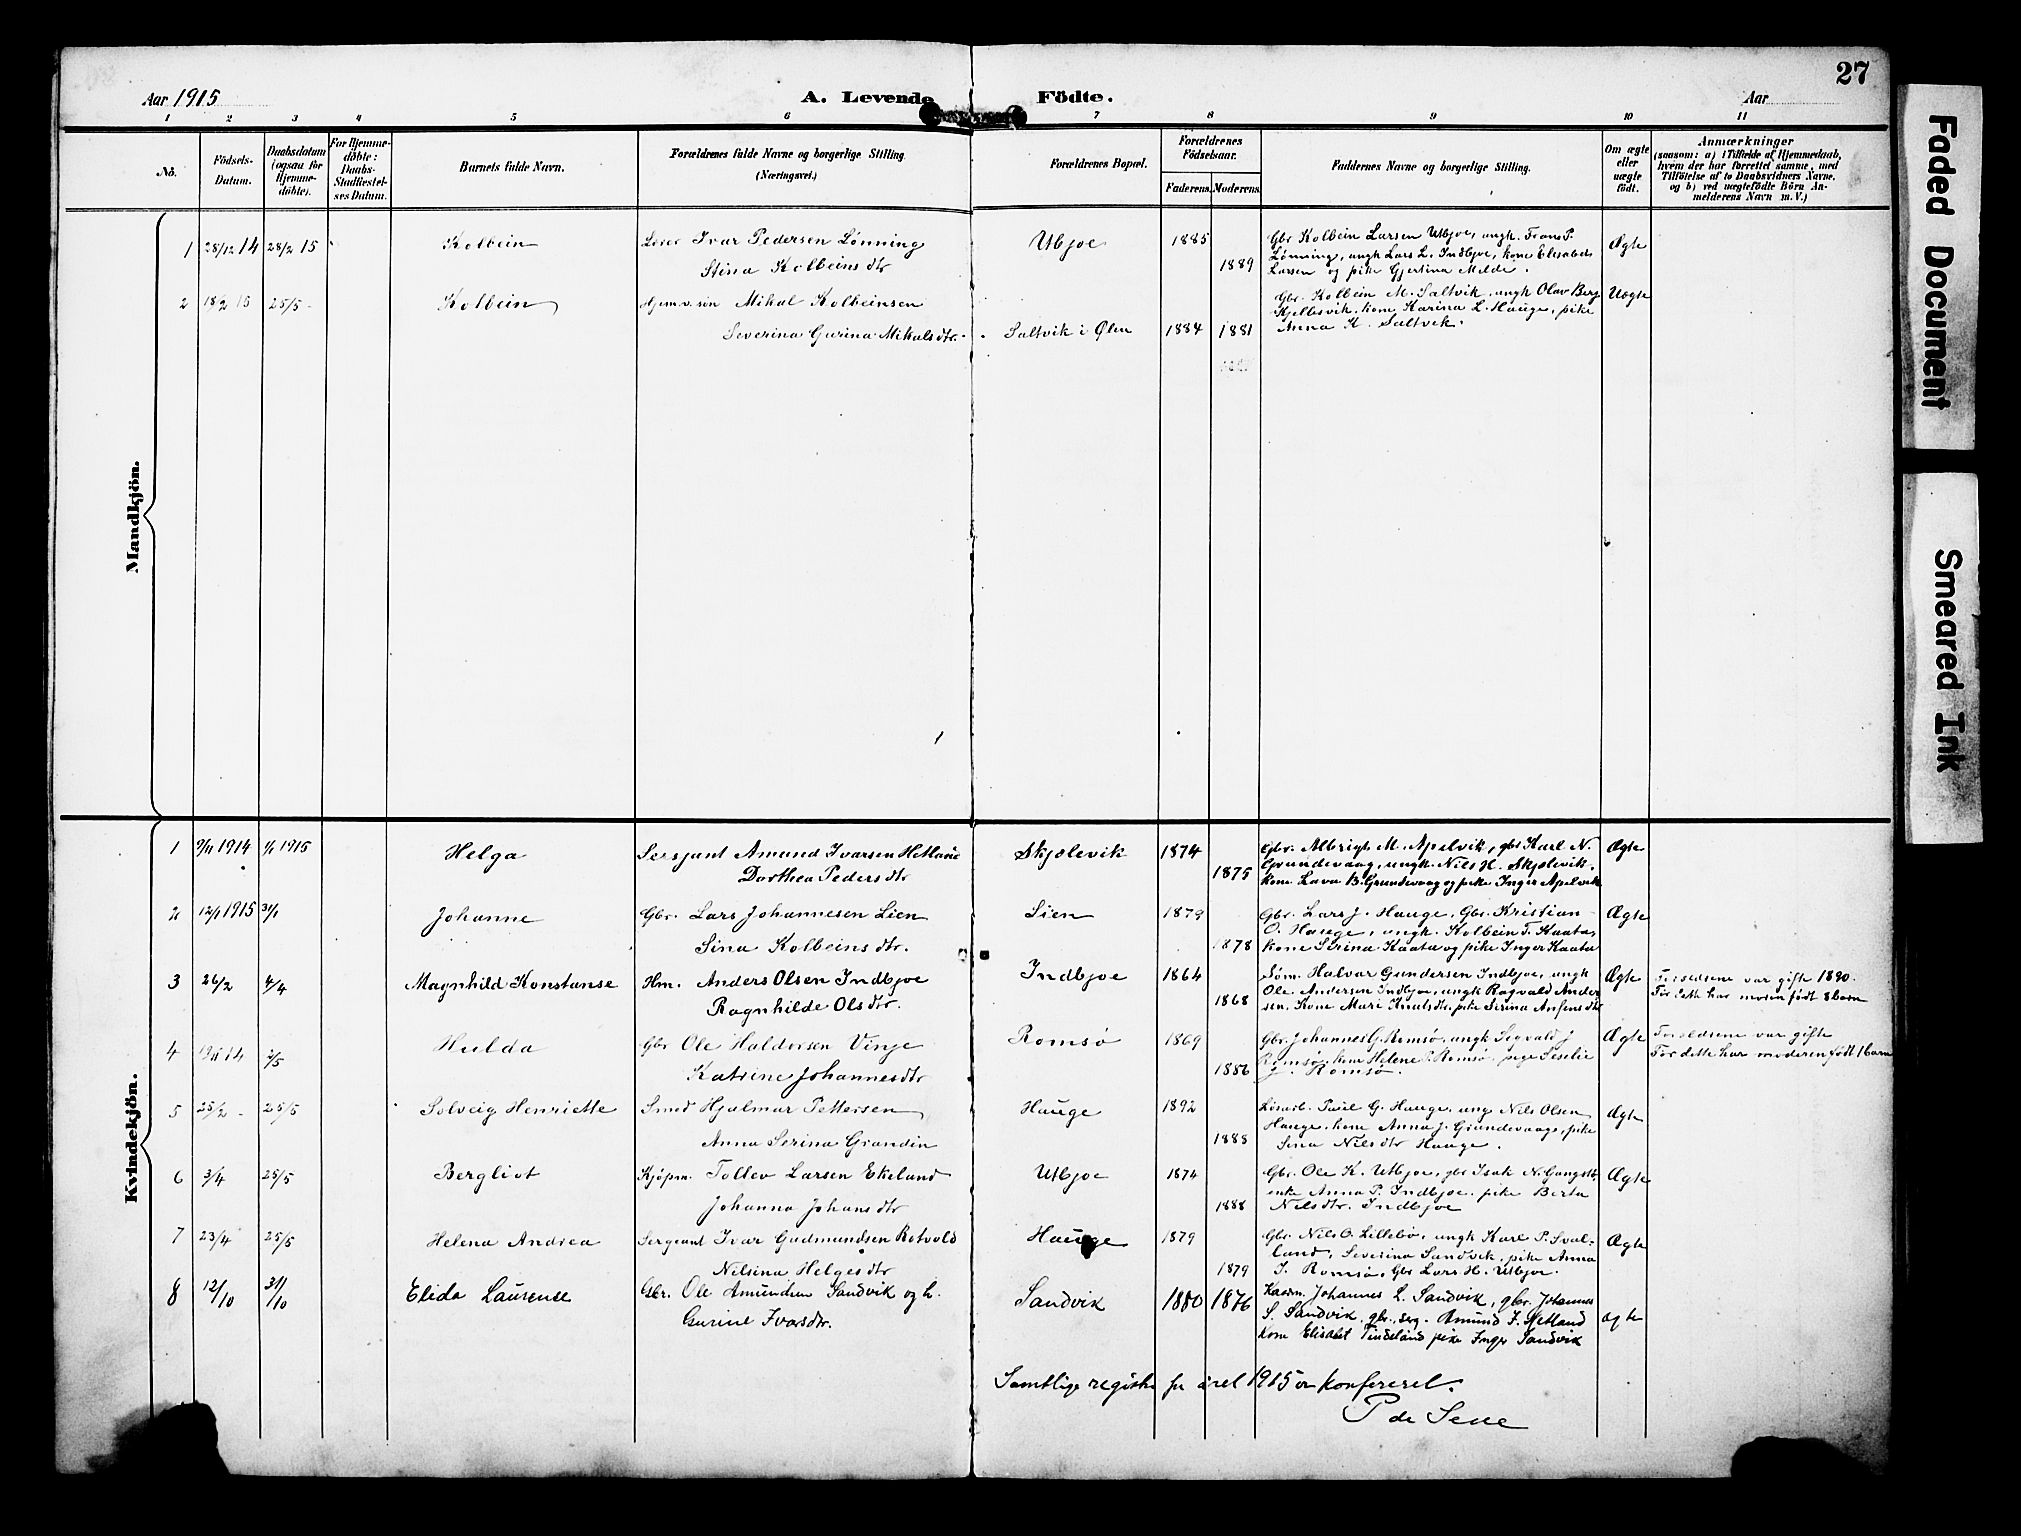 27
Aar 1915
A. Levende Födte.
Aar
1 2 3 4 5 6 7 8 9 10 11
No.
Födsels-Datum.
Daabsdatum (ogsaa for Hjemmedöbte).
For Hjemmedöbte: Daabs-Stadfæstelses Datum.
Barnets fulde Navn.
Forældrenes fulde Navne og borgerlige Stilling.
(Næringsvei.)
Forældrenes Bopæl.
Forældrenes Födselsaar.
Faderens. Moderens.
Faddernes Navne og borgerlige Stilling.
Om ægte eller uægte födt.
Anmærkninger
(saasom: a) i Tilfælde af Hjemmedaab, hvem der har forrettet samme, med Tilföielse af to Daabsvidners Navne, og b) ved uægtefödte Börn Anmelderens Navn m. V.)
Mandkjön.
1 28/12 14 28/2 15 Kolbein Lærer Ivar Pedersen Lønning Utbjoe 1885 Gbr Kolbein Larsen Utbjoe, ungk. Frans P. Ægte
Stina Kolbeinsdtr 1889 Lønning, ungk Lars L. Indbjoe, kone Elisabeth
Larsen og pike Gjertina Milde.
2 18/2 15 25/5 - Kolbein Hjem.v. søn Mikal Kolbeinsen Gbr. Kolbein M. Saltvik, ungk Olav Berg Uægte
Severina Gurina Mikalsdtr. Saltvik i Ølen 1884 1881 Kjelbsvik, kone Karina L. Hauge, pike
Anna K. Saltvik.
Kvindekjön.
1 9/11 1914 1/1 1915 Helga Sersjant Amund Ivarsen Hetland Skjolevik 1874 Gbr. Albrigt M. Apelvik, gbr Karl N. Ægte
Dorthea Pedersdtr 1875 Grundevaag, ungk. Nils H. Skjolevik.
kone Lava B. Grundevaag og pike Inger Apelvik
2 12/1 1915 31/1 Johanne Gbr. Lars Johannesen Lien Lien 1879 Gbr. Lars J. Hauge, Gbr. Kristian Ægte
Sina Kolbeinsdtr. 1878 O. Hauge, ungk. Kolbein T. Kaata,
kone Serina Kaata og pike Inger Kaata
3 26/2 4/4 Magnhild Konstanse Hm. Anders Olsen Indbjoe Indbjoe 1864 Søm. Halvar Gundersen Indbjoe, ungk Ægte Forældrene var gifte 1890.
Ragnhilde Olsdtr. 1868 Ole Andersen Indbjoe, ungk Ragvald Ander Før dette har moren født 8 barn
sen, Kone Mari Knutsdtr, pike Serina Anfensdtr
4 2/5 Hulda Gbr Ole Haldorsen Vinje Romsø 1869 Gbr. Johannes G. Romsø, ungk Segvald J Ægte Forældrene var gifte
Katrine Johannesdtr 1886 Romsø, kone Helene P. Romsø, pige Seselie Før dette har moderen født 1 barn
J. Romsø.
5 25/2 - 25/5 Solveig Henriette Smed Hjalmar Pettersen Hauge 1892 Løsarb. Paul G. Hauge, ung Nils Olsen Ægte
Anna Serina Grandin 1888 Hauge, kone Anna J. Grundevaage, pike
Sina Nilsdtr Hauge.
6 3/4 25/5 Bergliot Kjøpm. Tollev Larsen Ekeland Utbjoe 1874 Gbr. Ole K. Utbjoe, gbr Isak N. Gangstö, Ægte
Johanna Johansdtr 1888 enke Anna P. Indbjoe, pike Berta
Nilsdtr. Indbjoe
7 23/4 25/5 Helena Andrea Sergeant Ivar Gudmundsen Rotvold Hauge 1879 Gbr. Nils O. Lillebø, ungk Karl P. Sval- Ægte
Nilsina Helgesdtr 1879 land, Severina Sandvik, pike Anna
J. Romsø, Gbr Lars H. Utbjoe.
8 12/10 31/10 Elida Laurense Gbr. Ole Amundsen Sandvik og h. Sandvik 1880 1876 Kaarm. Johannes L. Sandvik, gbr. Johannes ægte
Gurine Ivarsdtr. S. Sandvik, gbr., serg. Amund I. Hetland
Kone Elisabet Tindeland pike Inger Sandvik
Samtlige registre for året 1915 er konfereret.
P de Seue
Faded Document
Smeared Ink